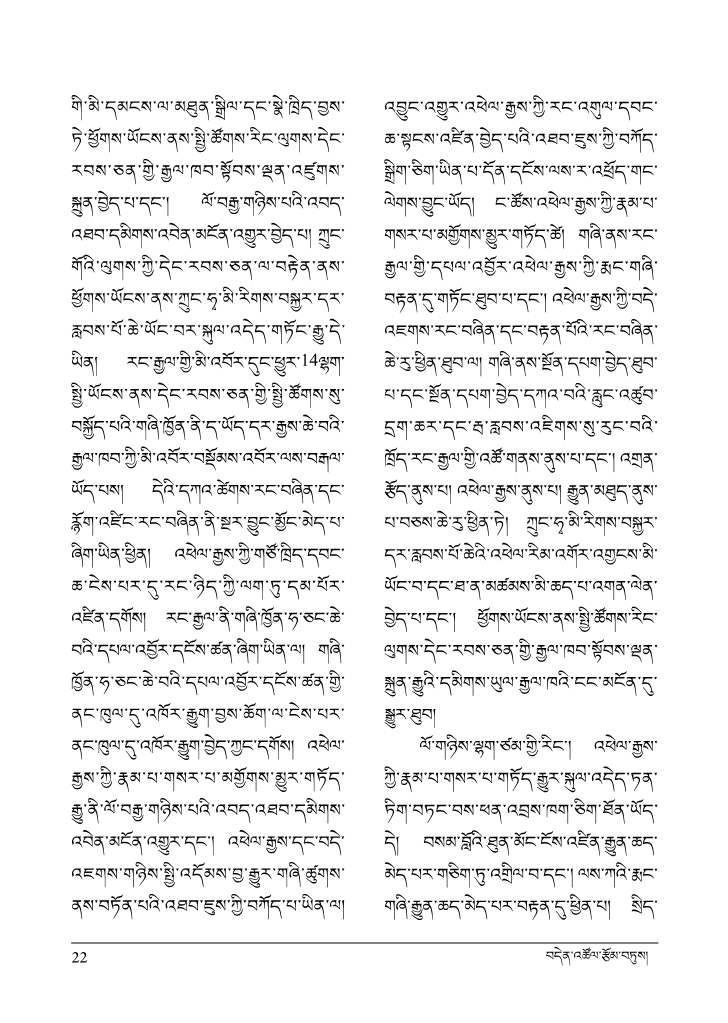 གི་མི་དམངས་ལ་མཐུན་སྒྲིལ་དང་སྣེ་ཁྲིད་བྱས་
ཏེ་ཕྱོགས་ཡོངས་ནས་སྤྱི་ཚོགས་རིང་ལུགས་དེང་
རབས་ཅན་གྱི་རྒྱལ་ཁབ་སྟོབས་ལྡན་འཛུགས་
སྐྲུན་བྱེད་པ་དང་། ལོ་བརྒྱ་གཉིས་པའི་འབད་
འཐབ་དམིགས་འབེན་མངོན་འགྱུར་བྱེད་པ། ཀྲུང་
གོའི་ལུགས་ཀྱི་དེང་རབས་ཅན་ལ་བརྟེན་ནས་
ཕྱོགས་ཡོངས་ནས་ཀྲུང་ཧྭ་མི་རིགས་བསྐྱར་དར་
རླབས་པོ་ཆེ་ཡོང་བར་སྐུལ་འདེད་གཏོང་རྒྱུ་དེ་
ཡིན། རང་རྒྱལ་གྱི་མི་འབོར་དུང་ཕྱུར་14ལྷག་
སྤྱི་ཡོངས་ནས་དེང་རབས་ཅན་གྱི་སྤྱི་ཚོགས་སུ་
བསྐྱོད་པའི་གཞི་ཁྱོན་ནི་ད་ཡོད་དར་རྒྱས་ཆེ་བའི་
རྒྱལ་ཁབ་ཀྱི་མི་འབོར་བསྡོམས་འབོར་ལས་བརྒལ་
ཡོད་པས། དེའི་དཀའ་ཚེགས་རང་བཞིན་དང་
རྙོག་འཛིང་རང་བཞིན་ནི་སྔར་བྱུང་མྱོང་མེད་པ་
ཞིག་ཡིན་ཕྱིན། འཕེལ་རྒྱས་ཀྱི་གཙོ་ཁྲིད་དབང་
ཆ་ངེས་པར་དུ་རང་ཉིད་ཀྱི་ལག་ཏུ་དམ་པོར་
འཛིན་དགོས། རང་རྒྱལ་ནི་གཞི་ཁྱོན་ཧ་ཅང་ཆེ་
བའི་དཔལ་འབྱོར་དངོས་ཚན་ཞིག་ཡིན་ལ། གཞི་
ཁྱོན་ཧ་ཅང་ཆེ་བའི་དཔལ་འབྱོར་དངོས་ཚན་གྱི་
ནང་ཁུལ་དུ་འཁོར་རྒྱུག་བྱས་ཆོག་ལ་ངེས་པར་
ནང་ཁུལ་དུ་འཁོར་རྒྱུག་བྱེད་ཀྱང་དགོས། འཕེལ་
རྒྱས་ཀྱི་རྣམ་པ་གསར་པ་མགྱོགས་མྱུར་གཏོད་
རྒྱུ་ནི་ལོ་བརྒྱ་གཉིས་པའི་འབད་འཐབ་དམིགས་
འབེན་མངོན་འགྱུར་དང་། འཕེལ་རྒྱས་དང་བདེ་
འཇགས་གཉིས་སྤྱི་འདོམས་བྱ་རྒྱུར་གཞི་ཚུགས་
ནས་བཏོན་པའི་འཐབ་ཇུས་ཀྱི་བཀོད་པ་ཡིན་ལ།
འབྱུང་འགྱུར་འཕེལ་རྒྱས་ཀྱི་རང་འགུལ་དབང་
ཆ་སྟངས་འཛིན་བྱེད་པའི་འཐབ་ཇུས་ཀྱི་བཀོད་
སྒྲིག་ཅིག་ཡིན་པ་དོན་དངོས་ལས་ར་འཕྲོད་གང་
ལེགས་བྱུང་ཡོད། ང་ཚོས་འཕེལ་རྒྱས་ཀྱི་རྣམ་པ་
གསར་པ་མགྱོགས་མྱུར་གཏོད་ཚེ། གཞི་ནས་རང་
རྒྱལ་གྱི་དཔལ་འབྱོར་འཕེལ་རྒྱས་ཀྱི་རྨང་གཞི་
བརྟན་དུ་གཏོང་ཐུབ་པ་དང་། འཕེལ་རྒྱས་ཀྱི་བདེ་
འཇགས་རང་བཞིན་དང་བརྟན་པོའི་རང་བཞིན་
ཆེ་རུ་ཕྱིན་ཐུབ་ལ། གཞི་ནས་སྔོན་དཔག་བྱེད་ཐུབ་
པ་དང་སྔོན་དཔག་བྱེད་དཀའ་བའི་རླུང་འཚུབ་
དྲག་ཆར་དང་རྦ་རླབས་འཇིགས་སུ་རུང་བའི་
ཁྲོད་རང་རྒྱལ་གྱི་འཚོ་གནས་ནུས་པ་དང་། འགྲན་
རྩོད་ནུས་པ། འཕེལ་རྒྱས་ནུས་པ། རྒྱུན་མཐུད་ནུས་
པ་བཅས་ཆེ་རུ་ཕྱིན་ཏེ། ཀྲུང་ཧྭ་མི་རིགས་བསྐྱར་
དར་རླབས་པོ་ཆེའི་འཕེལ་རིམ་འགོར་འགྱངས་མི་
ཡོང་བ་དང་ཐ་ན་མཚམས་མི་ཆད་པ་འགན་ལེན་
བྱེད་པ་དང་། ཕྱོགས་ཡོངས་ནས་སྤྱི་ཚོགས་རིང་
ལུགས་དེང་རབས་ཅན་གྱི་རྒྱལ་ཁབ་སྟོབས་ལྡན་
སྐྲུན་རྒྱུའི་དམིགས་ཡུལ་རྒྱལ་ཁའི་ངང་མངོན་དུ་
སྒྱུར་ཐུབ།
ལོ་གཉིས་ལྷག་ཙམ་གྱི་རིང་། འཕེལ་རྒྱས་
ཀྱི་རྣམ་པ་གསར་པ་གཏོད་རྒྱུར་སྐུལ་འདེད་ཏན་
ཏིག་བཏང་བས་ཕན་འབྲས་ཁག་ཅིག་ཐོན་ཡོད་
དེ། བསམ་བློའི་ཐུན་མོང་ངོས་འཛིན་རྒྱུན་ཆད་
མེད་པར་གཅིག་ཏུ་འགྲིལ་བ་དང་། ལས་ཀའི་རྨང་
གཞི་རྒྱུན་ཆད་མེད་པར་བརྟན་དུ་ཕྱིན་པ། སྲིད་
22
བདེན་འཚོལ་རྩོམ་བཏུས།